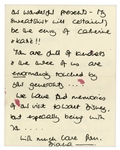 such wonderful presents - My
sweatshirt will certainly
be the envy of Catherine
& Kate!!
You are full of kindness
& the three of us are
enormously touched by
your generosity ....
We have fond memories
of our visit to Walt Disney,
but especially being with
you ....
with much love from
Diana